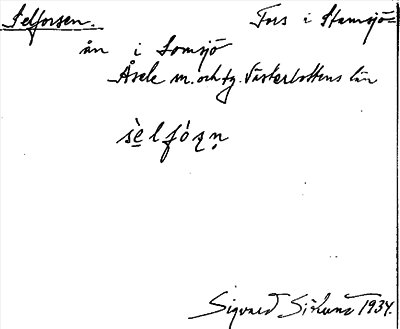 Selforsen. Fors i Stamsjö=
ån i Lomsjö
Åsele sn. och tg. Västerbottens län
sèlfórṣn̥
Sigvard Sislund 1934.